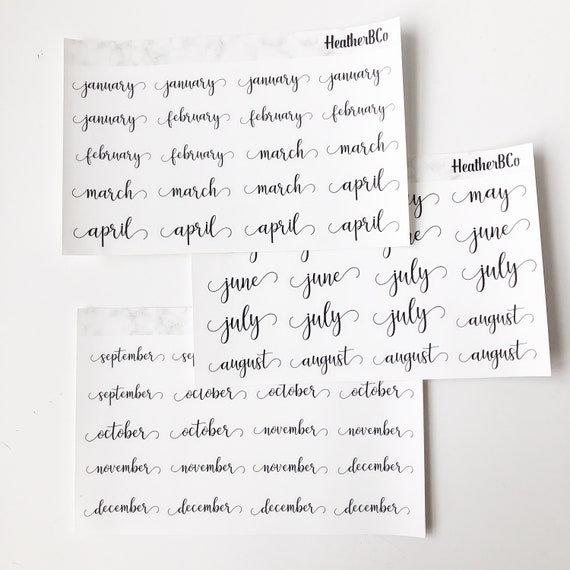 HeatherBCo
january january january january
january february february february
february february march march
march march march april
april april april april
HeatherBCo
may
june
june june july july
july july july august
august august august august
september
september october october october
october october november november
november november november december
december december december december